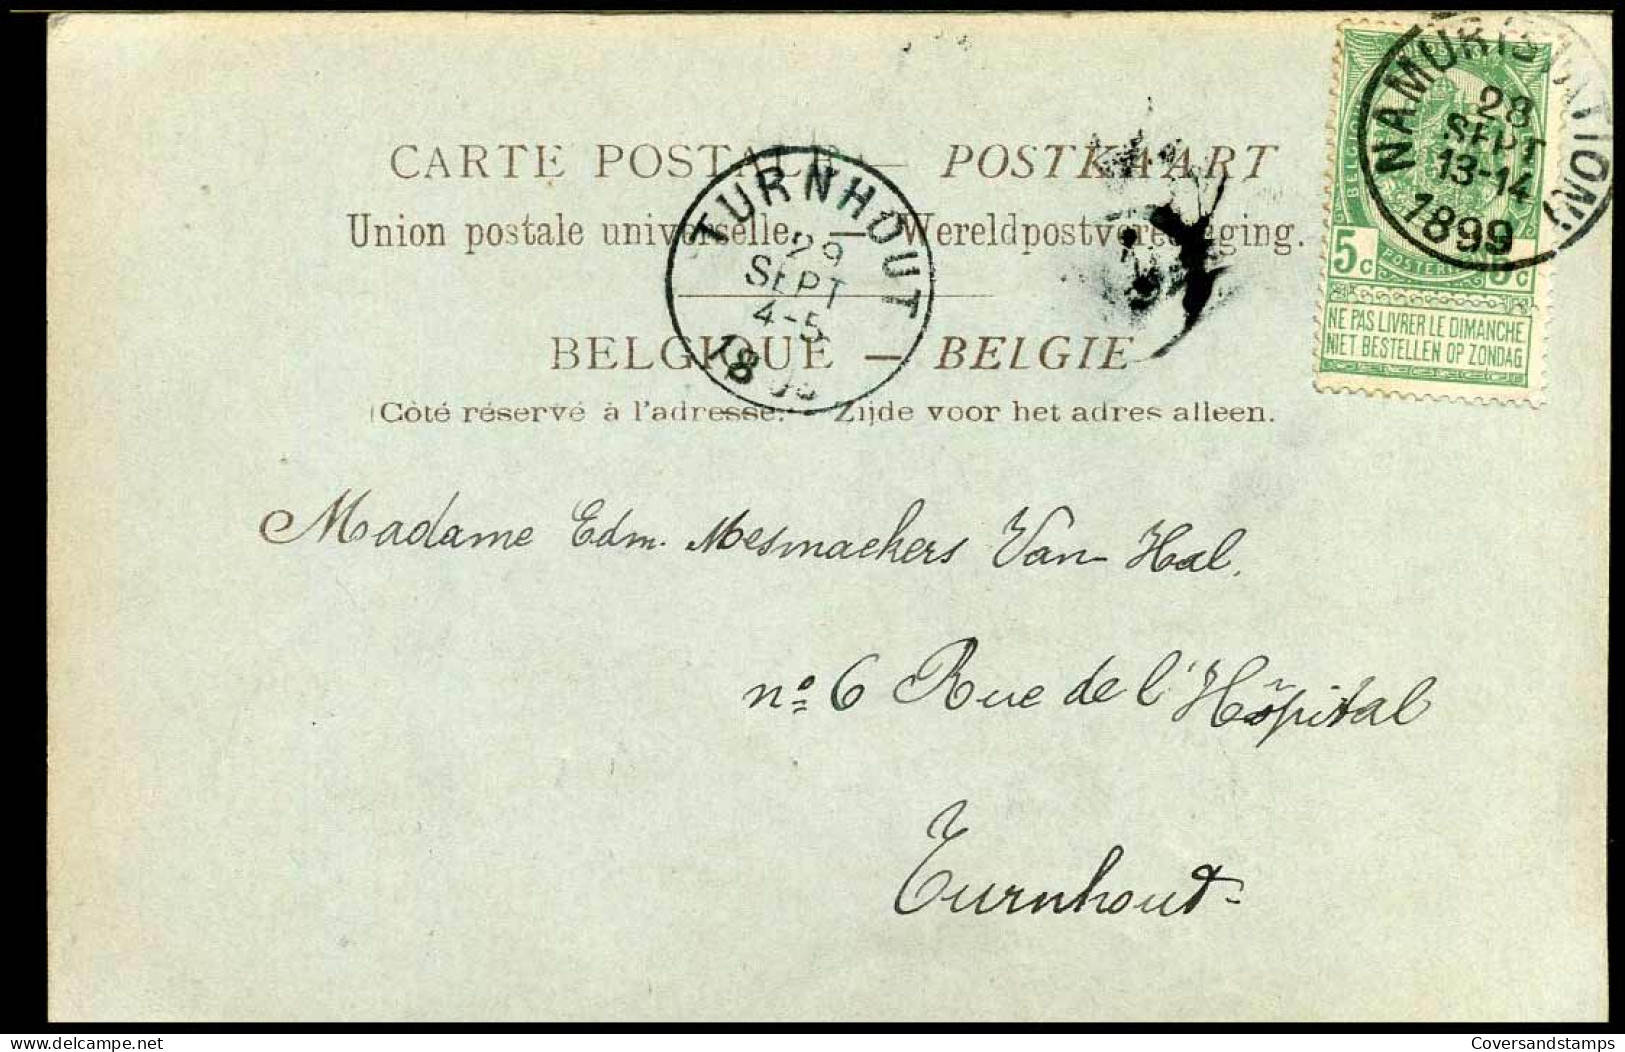 CARTE POSTALE — POSTKAART
Union postale universelle. — Wereldpostvereeniging.
BELGIQUE — BELGIE
(Côté réservé à l'adresse. Zijde voor het adres alleen.
TURNHOUT
29
SEPT
4-5
NAMUR (STATION)
28
SEPT
13-14
1899
5c 5c
NE PAS LIVRER LE DIMANCHE
NIET BESTELLEN OP ZONDAG
Madame Edm. Mesmaekers Van Hal.
nº 6 Rue de l'Hôpital
Turnhout
delcampe.net
Coversandstamps